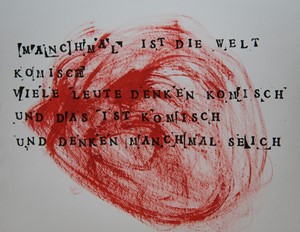 MANCHMAL IST DIE WELT
KOMISCH
VIELE LEUTE DENKEN KOMISCH
UND DAS IST KOMISCH
UND DENKEN MANCHMAL SEICH